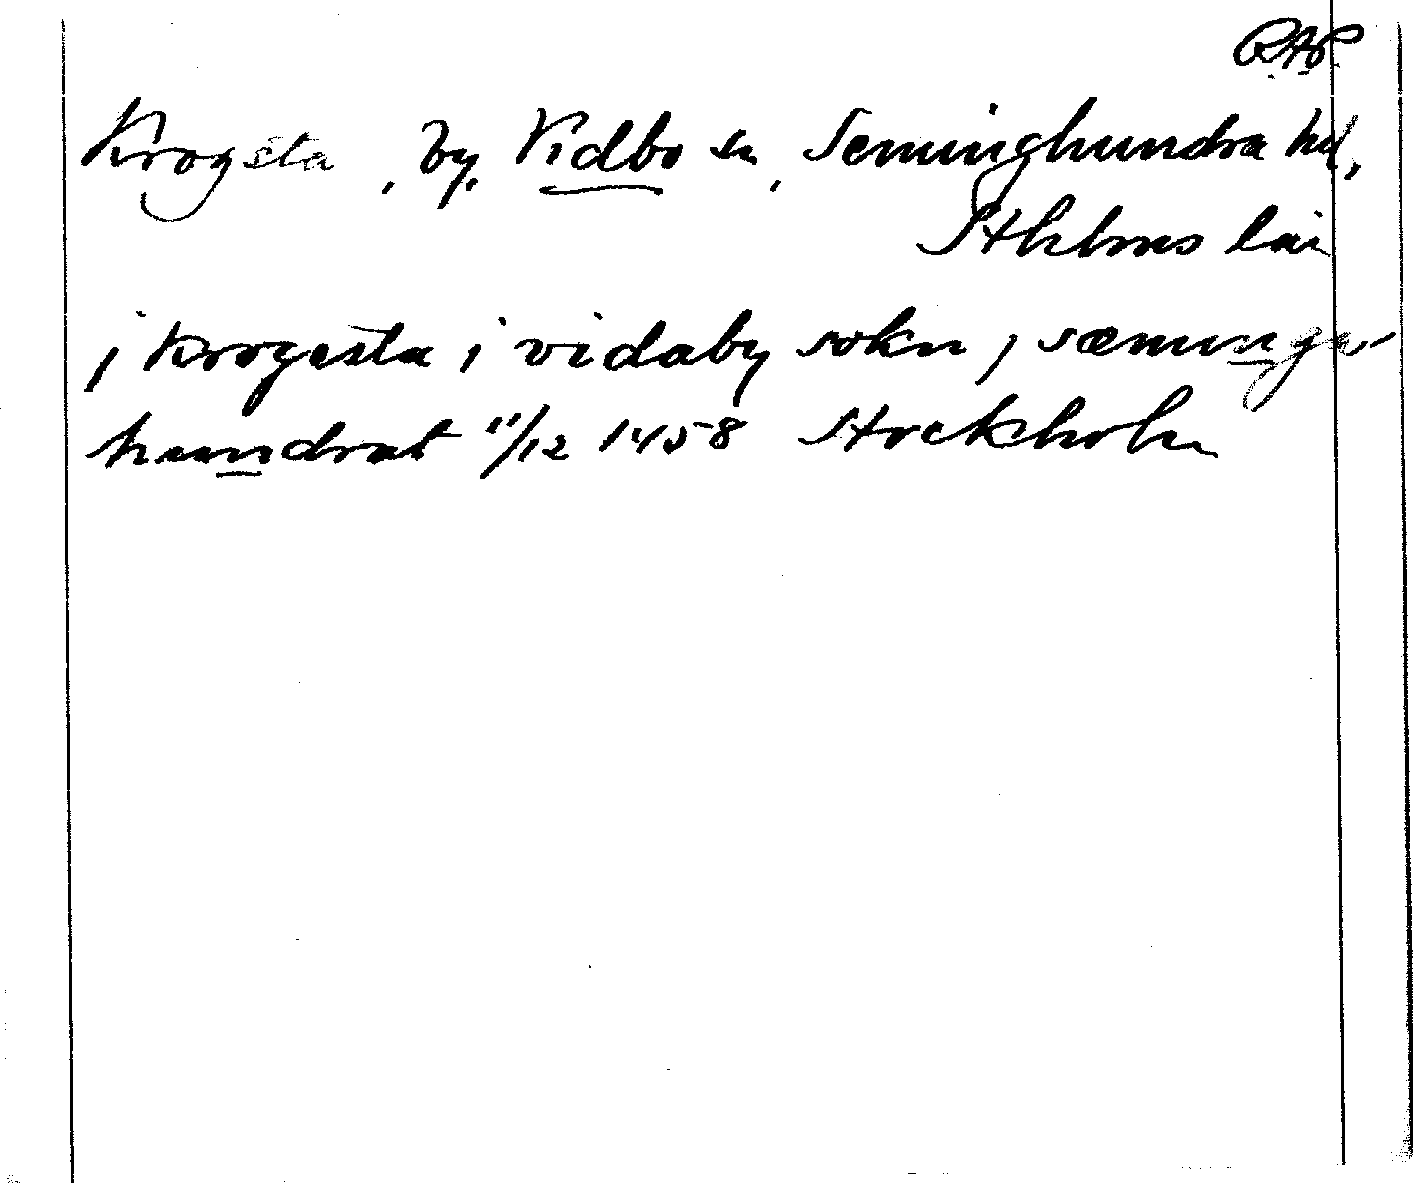 RAP.
Krogsta, by, Vidbo sn, Seminghundra hd,
Sthlms län
j krogesta i vidaby sokn j sæmunga-
hundrat 11/12 1458 Stockholm